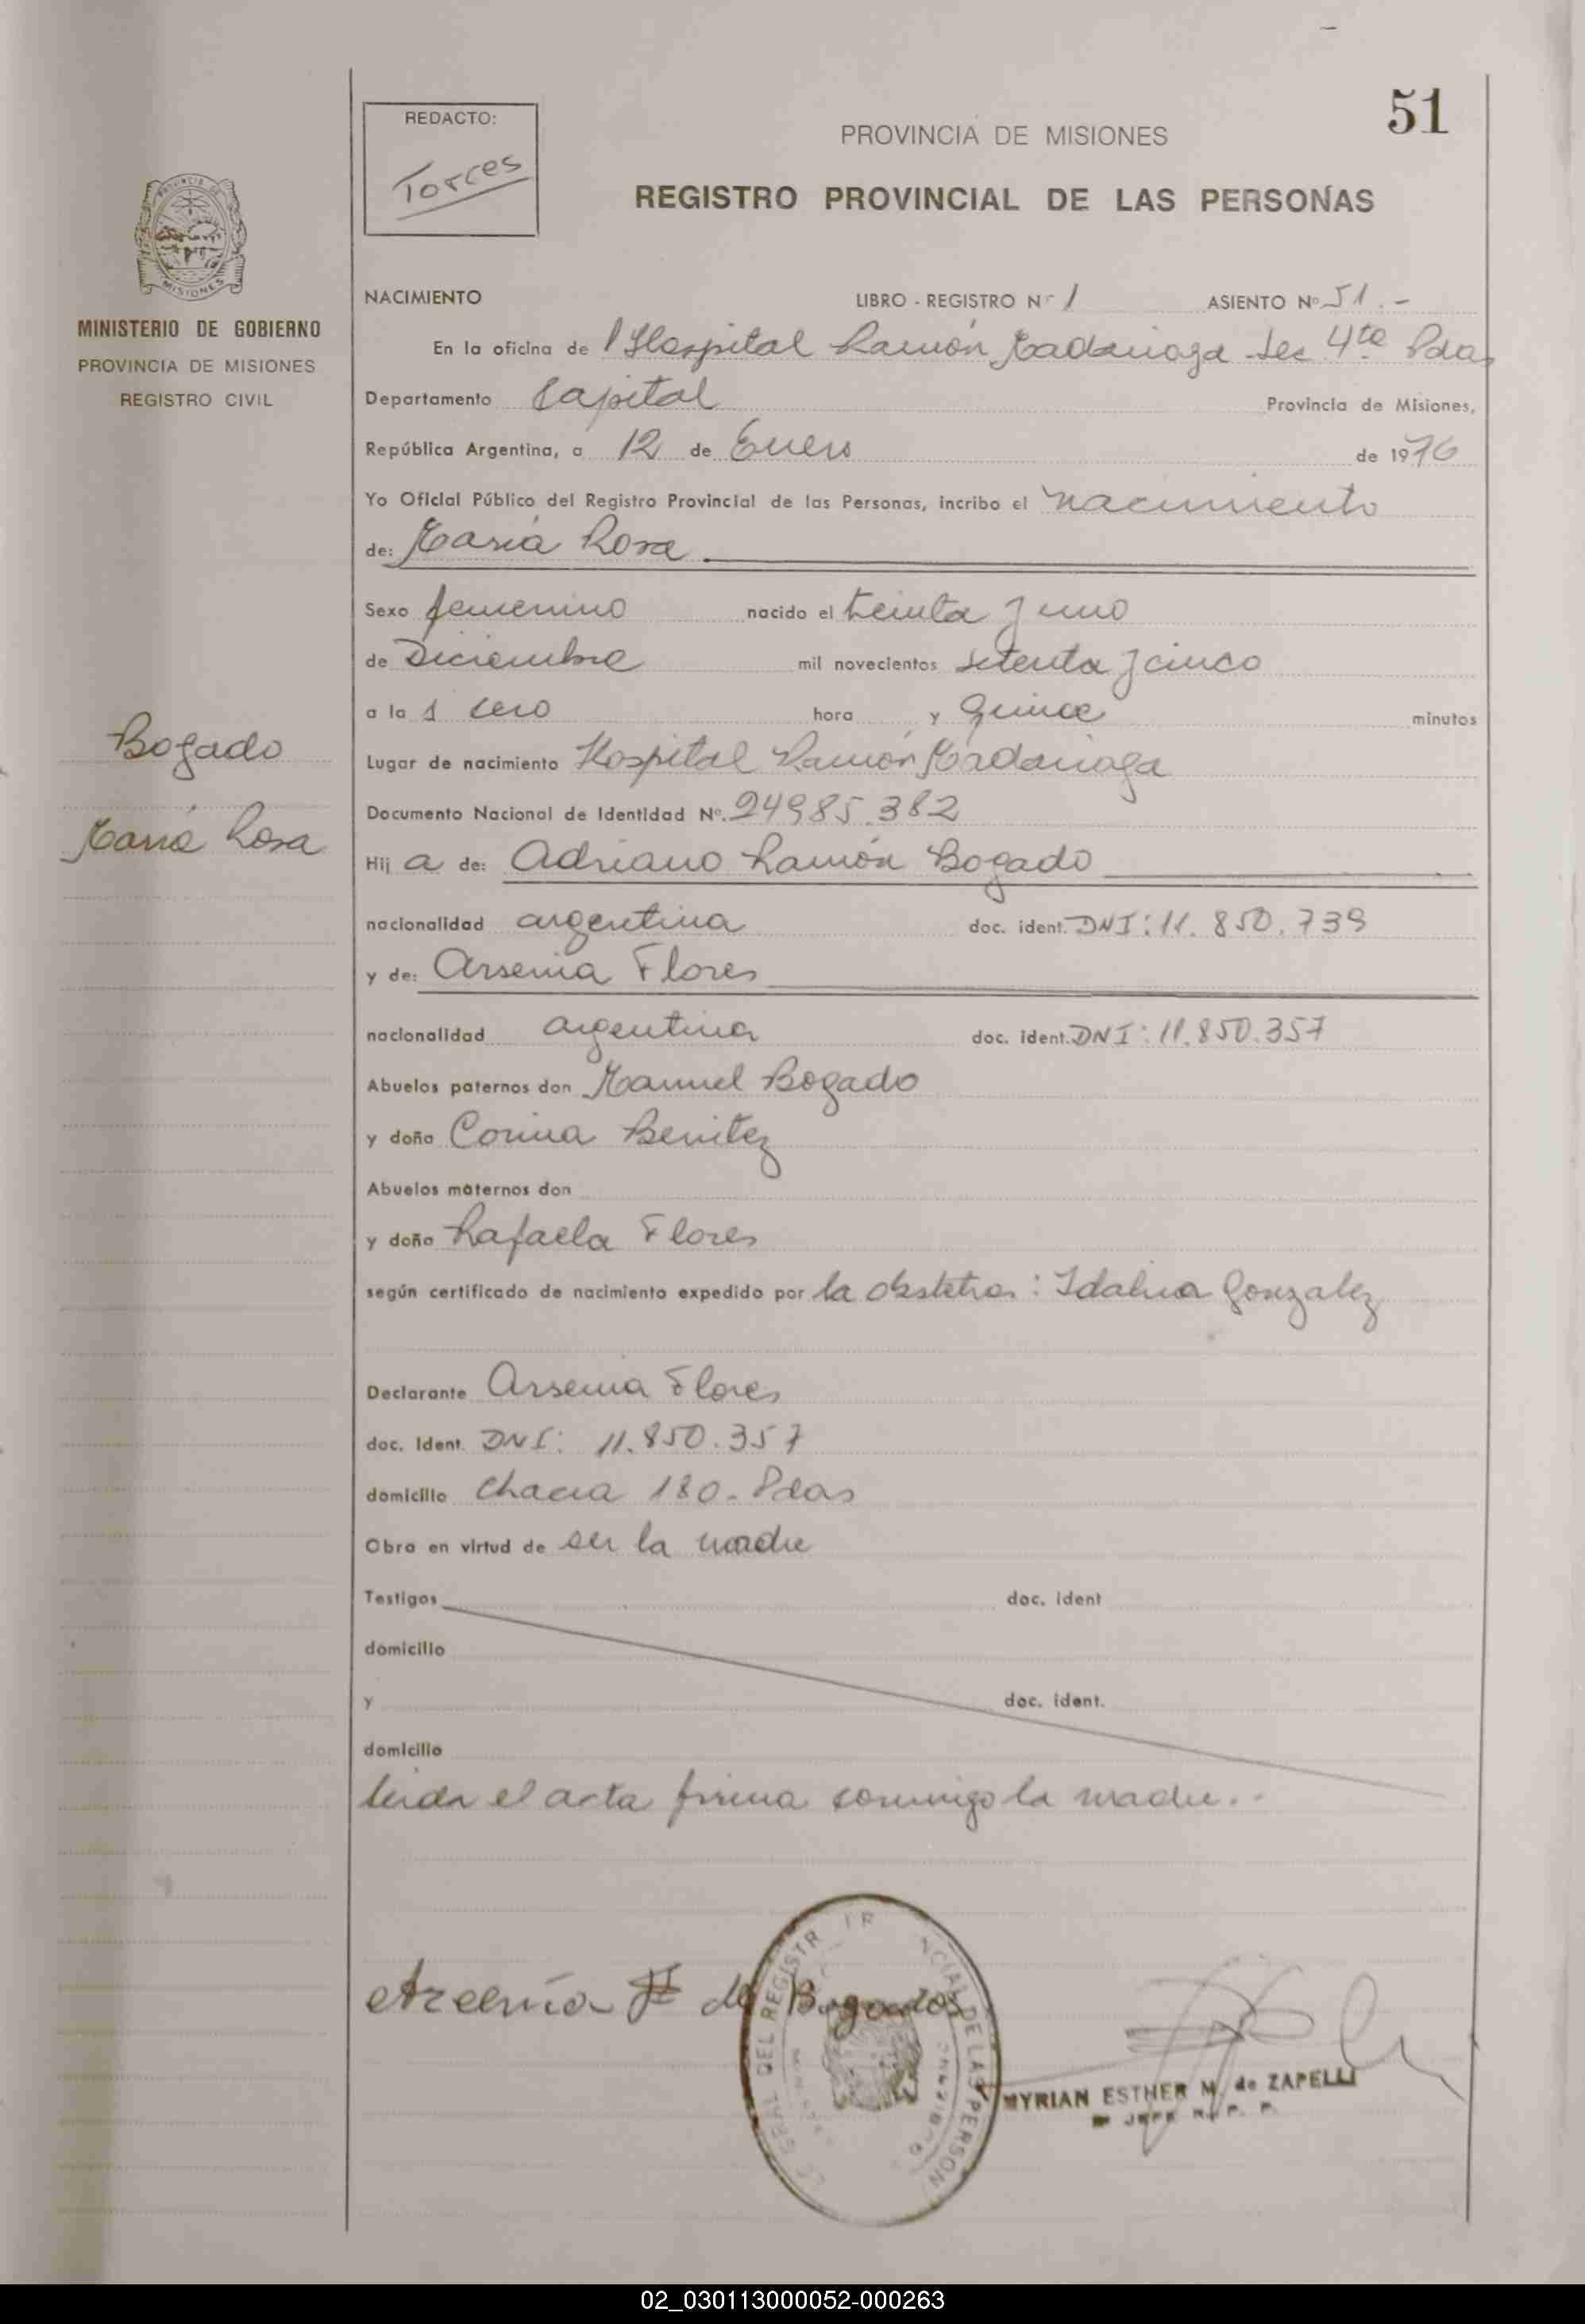 51
REDACTO:
Torres
PROVINCIA DE MISIONES
REGISTRO PROVINCIAL DE LAS PERSONAS
MINISTERIO DE GOBIERNO
PROVINCIA DE MISIONES
REGISTRO CIVIL
NACIMIENTO LIBRO - REGISTRO Nº 1 ASIENTO Nº 51.-
En la oficina de l Hospital Ramón Madariaga Sec 4ta Pdas
Departamento Capital Provincia de Misiones,
República Argentina, a 12 de Enero de 1976
Yo Oficial Público del Registro Provincial de las Personas, incribo el nacimiento
de: María Rosa
Sexo femenino nacido el treinta y uno
de Diciembre mil novecientos setenta y cinco
a la s cero hora y quince minutos
Bogado
María Rosa
Lugar de nacimiento Hospital Ramón Madariaga
Documento Nacional de Identidad Nº. 24985.382
Hij a de: Adriano Ramón Bogado
nacionalidad argentina doc. ident. DNI: 11.850.739
y de: Arsenia Flores
nacionalidad argentina doc. ident. DNI: 11.850.357
Abuelos paternos don Manuel Bogado
y doña Corina Benitez
Abuelos maternos don
y doña Rafaela Flores
según certificado de nacimiento expedido por la obstetra: Idalina Gonzalez
Declarante Arsenia Flores
doc. Ident. DNI: 11.850.357
domicilio Chacra 180. Pdas
Obra en virtud de ser la madre
Testigos doc. ident
domicilio
y doc. ident.
domicilio
leida el acta firma conmigo la madre..
de Bogado
MYRIAN ESTHER M. de ZAPELLI
JEFE R. P. P.
02_030113000052-000263